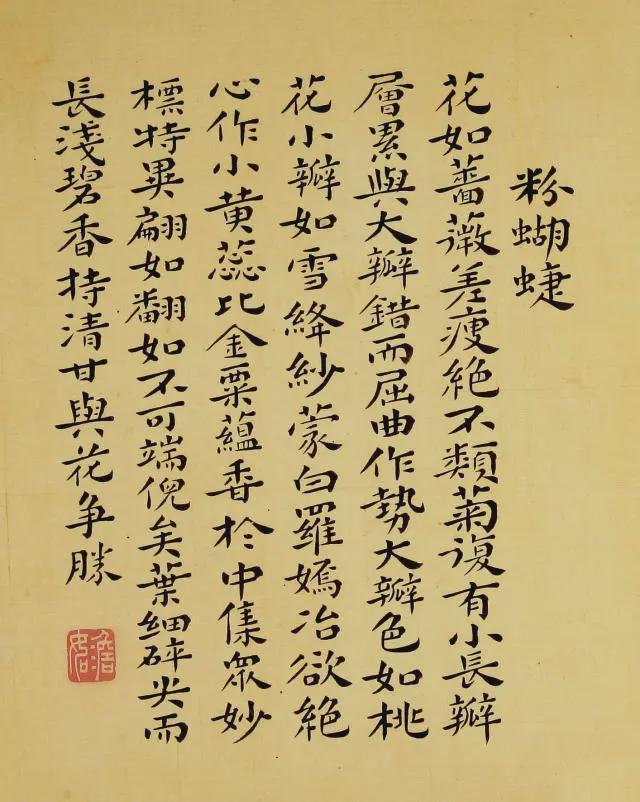 粉蝴蜨
花如薔薇差瘦絶不類菊復有小長瓣
層累與大瓣錯而屈曲作勢大瓣色如桃
花小瓣如雪絳紗蒙白羅嫣冶欲絶
心作小黄蕊比金粟蘊香於中集衆妙
標特異翩如翻如不可端倪矣葉細碎尖而
長淺碧香持清甘與花争勝